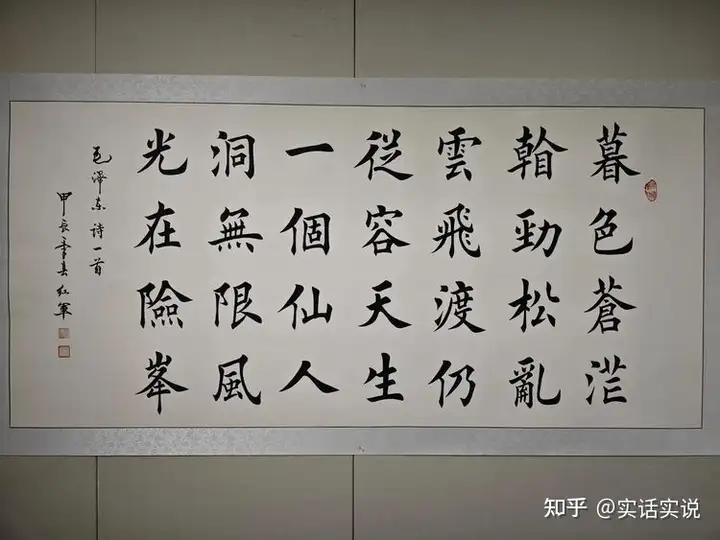 暮色蒼茫
勁松亂
雲飛渡仍
從容天生
一個仙人
洞無限風
光在險峯
毛澤东诗一首
甲辰季春红军
知乎 @实话实说